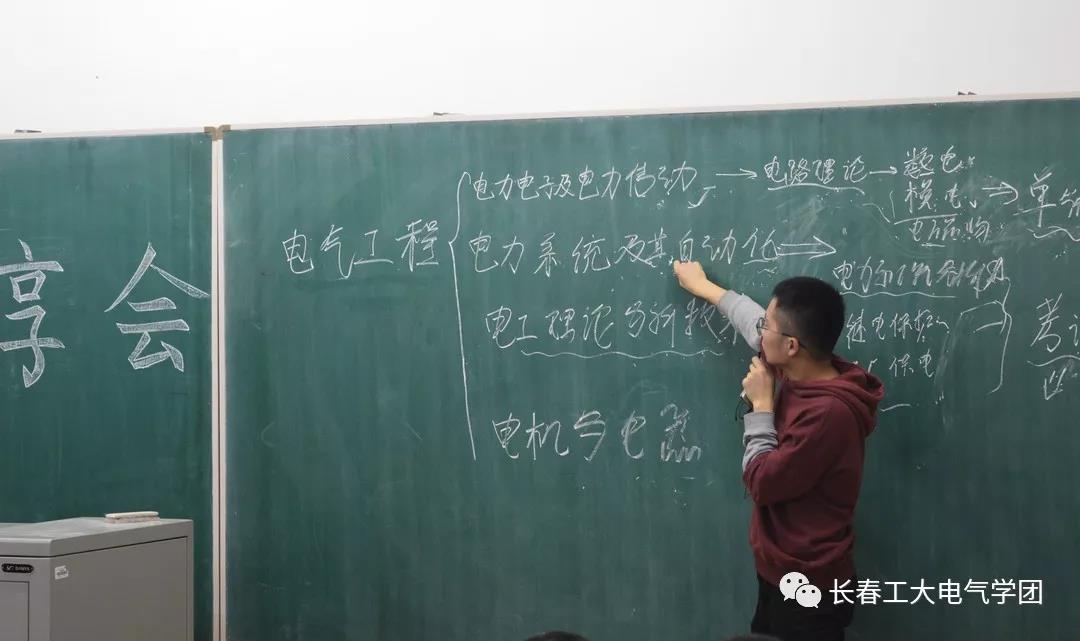 享会
电气工程
电力电子及电力传动 → 电路理论 → 数电
模电
单
电力系统及其自动化
电工理论与新技
继电保护
供电
考
电机与电器
长春工大电气学团